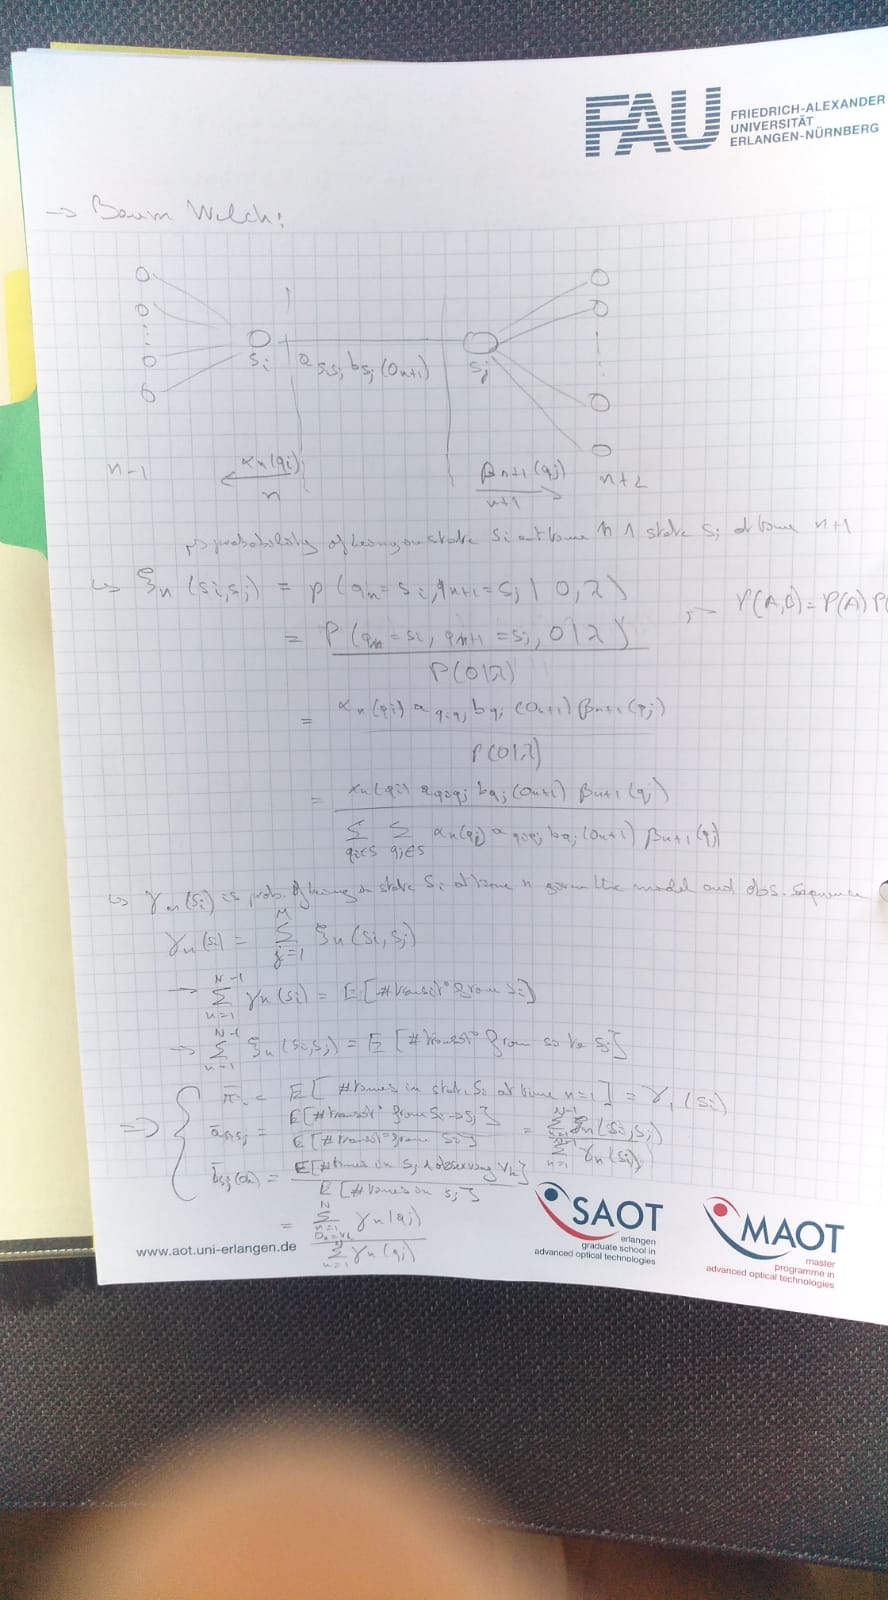 FAU FRIEDRICH-ALEXANDER
UNIVERSITÄT
ERLANGEN-NÜRNBERG
→ Baum Welch:
s_i a_{s_i s_j} b_{s_j}(O_{n+1}) s_j
n-1 α_n(q_i) β_{n+1}(q_j) n+2
n n+1
↳ probability of being on state s_i at time n ∧ state s_j at time n+1
↳ ξ_n(s_i,s_j) = p(q_n = s_i, q_{n+1} = s_j | O, λ)
P(A,B) = P(A) P(
= P(q_n = s_i, q_{n+1} = s_j, O | λ)
P(O|λ)
= α_n(q_i) a_{q_i q_j} b_{q_j}(O_{n+1}) β_{n+1}(q_j)
P(O|λ)
= α_n(q_i) a_{q_i q_j} b_{q_j}(O_{n+1}) β_{n+1}(q_j)
Σ_{q_i∈S} Σ_{q_j∈S} α_n(q_i) a_{q_i q_j} b_{q_j}(O_{n+1}) β_{n+1}(q_j)
↳ γ_n(s_i) is prob. of being on state s_i at time n given the model and obs. sequence
γ_n(s_i) = Σ_{j=1}^{M} ξ_n(s_i,s_j)
→ Σ_{n=1}^{N-1} γ_n(s_i) = E[#transit° from s_i]
→ Σ_{n=1}^{N-1} ξ_n(s_i,s_j) = E[#transit° from s_i to s_j]
⇒ { π̄_i = E[#times in state s_i at time n=1] = γ_1(s_i)
ā_{s_i s_j} = E[#transit° from s_i → s_j] = Σ_{n=1}^{N-1} ξ_n(s_i,s_j)
E[#transit° from s_i] Σ_{n=1}^{N-1} γ_n(s_i)
b̄_{s_j}(O_k) = E[#times on s_j ∧ observing v_k]
E[#times on s_j]
= Σ_{n=1, O_n=v_k}^{N} γ_n(q_j)
Σ_{n=1}^{N} γ_n(q_j)
www.aot.uni-erlangen.de
SAOT
erlangen
graduate school in
advanced optical technologies
MAOT
master
programme in
advanced optical technologies